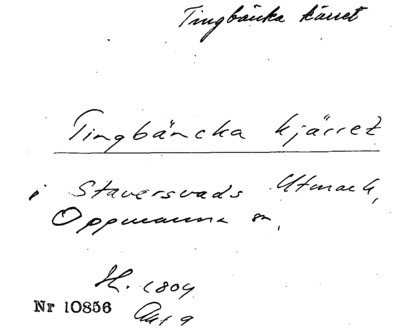 Tingbänka kärret
Tingbäncka kjärret
i Staversvads Utmark,
Oppmanna sn,
H. 1804
Nr 10856 Akt 9